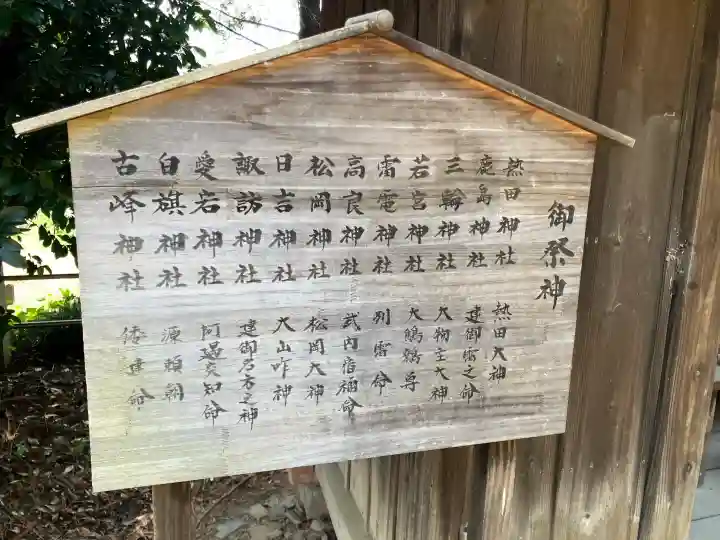 御祭神
熱田神社 熱田大神
鹿島神社 建御雷之命
三輪神社 大物主大神
若宮神社 大鷦鷯尊
雷電神社 別雷命
高良神社 武内宿禰命
松岡神社 松岡大神
日吉神社 大山咋神
諏訪神社 建御名方之神
愛宕神社 阿遏突知命
白旗神社 源頼朝
古峰神社 倭建命